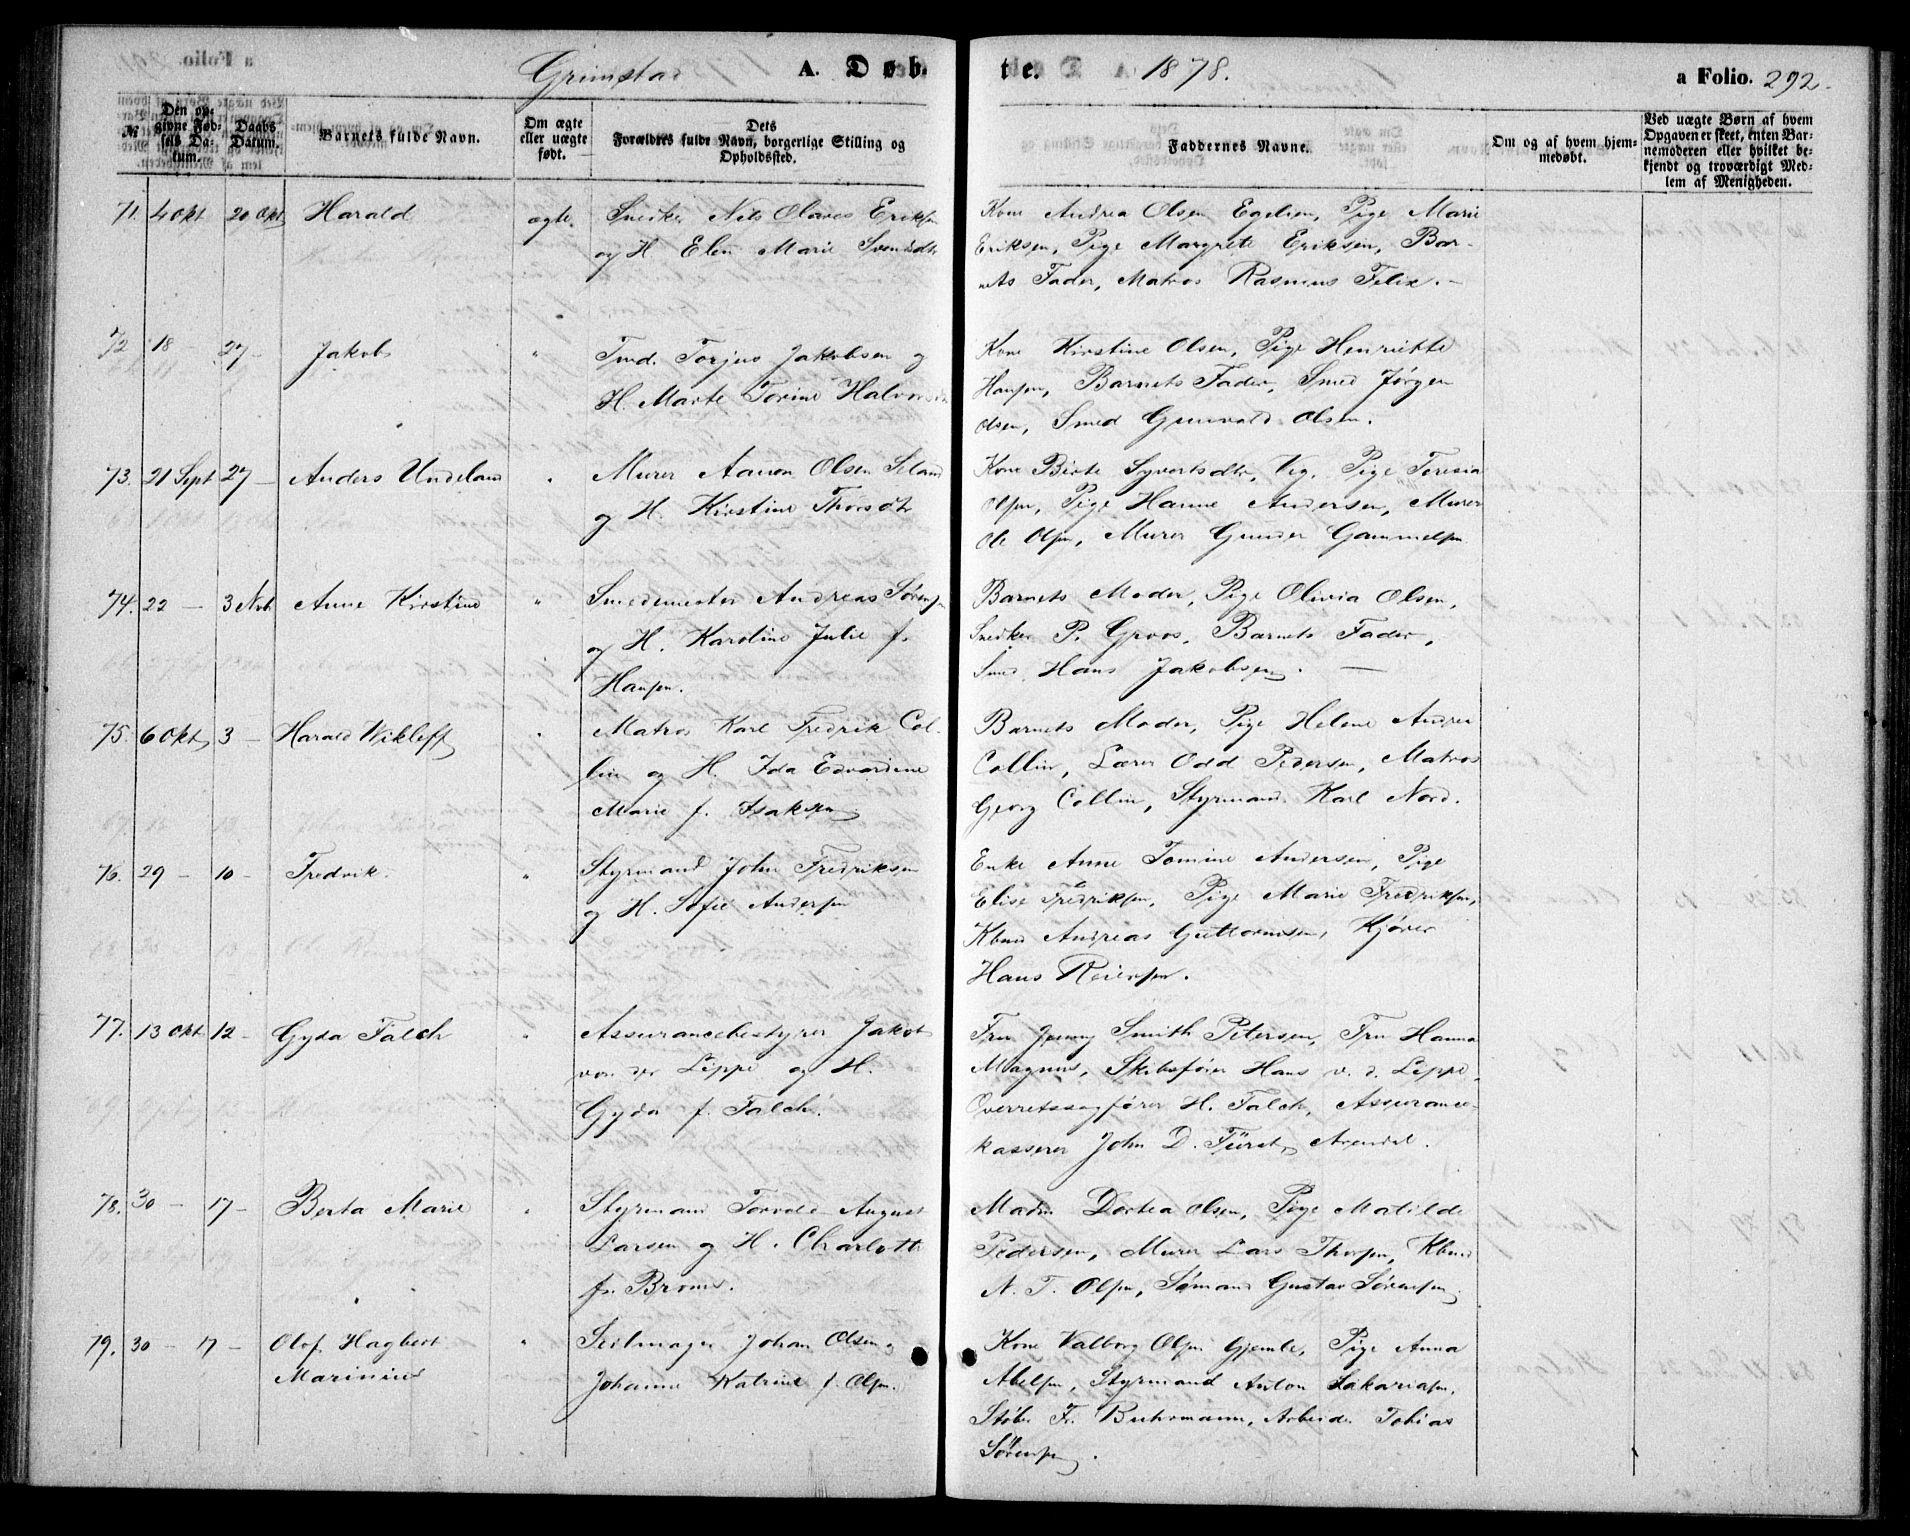 Grimstad A. Døb-
te. 1878. a Folio. 292.
№
Den op-
givne Fød-
sels Da-
tum.
Daabs
Datum.
Barnets fulde Navn.
Om ægte
eller uægte
født.
Dets
Forældres fulde Navn, borgerlige Stilling og
Opholdssted.
Faddernes Navne.
Om og af hvem hjem-
medøbt.
Ved uægte Børn af hvem
Opgaven er skeet, enten Bar-
nemoderen eller hvilket be-
kjendt og troværdigt Med-
lem af Menigheden.
71. 4 Okt 20 Okt Harald ægte.
Snedker Nils Olaves Eriksen
og H. Elen Marie Svendsdtr
Kone Andrea Olsen Egelien, Pige Marie
Eriksen, Pige Margrete Eriksen, Bar-
nets Fader, Matros Rasmus Felix. —
72 18 — 27 — Jakob "
Tmd. Torjus Jakobsen og
H. Marte Torine Halvorsdtr
Kone Kirstine Olsen, Pige Henriette
Hansen, Barnets Fader, Smed Jørgen
Olsen, Smed Gunvald Olsen.
73. 21 Sept 27 — Anders Undeland "
Murer Aanon Olsen Siland
og H. Kirstine Thorsdtr
Kone Birte Syvertsdtr, Vig, Pige Teresia
Olsen, Pige Hanne Andersen, Murer
Ole Olsen, Murer Gunder Gammelsen
74. 22 — 3 Nvb Anne Kirstine "
Smedemester Andreas Sørensen
og H. Karoline Julie f.
Hansen.
Barnets Moder, Pige Olivia Olsen,
Snedker P. Groos, Barnets Fader,
Smed Hans Jakobsen. —
75. 6 Okt 3 — Harald Wikleff "
Matros Karl Fredrik Col-
lin og H. Ida Edvardine
Marie f. Isaksen
Barnets Moder, Pige Helene Andrea
Collin, Lærer Odd Pedersen, Matros
Georg Collin, Styrmand Karl Nord.
76. 29 — 10 — Fredrik. "
Styrmand John Fredriksen
og H. Sofie Andersen
Enke Anne Tomine Andersen, Pige
Elise Fredriksen, Pige Marie Fredriksen,
Kbmd Andreas Guttormsen, Kjører
Hans Reiersen.
77. 13 Okt 12 — Gyda Falch "
Assurancebestyrer Jakob
von der Lippe og H.
Gyda f. Falch.
Fru Jenny Smith Petersen, Fru Hanna
Magnus, Skibsfører Hans v. d. Lippe,
Overretssagfører H. Falch, Assurance-
kasserer John D. Fürst, Arendal.
78. 30 — 17 — Berta Marie "
Styrmand Torvald August
Larsen og H. Charlotte
f. Broms.
Madm Dortea Olsen, Pige Matilde
Pedersen, Murer Lars Thorsen, Kbmd
N. T. Olsen, Sømand Gustav Sørensen
79. 30 — 17 — Olof Hagbert "
Marinius
Seilmager Johan Olsen og
Johanne Katrine f. Olsen.
Kone Valborg Olsen Gjemle, Pige Anna
Abelsen, Styrmand Anton Sakariasen,
Støber Fr. Buhrmann, Arbeider Tobias
Sørensen.